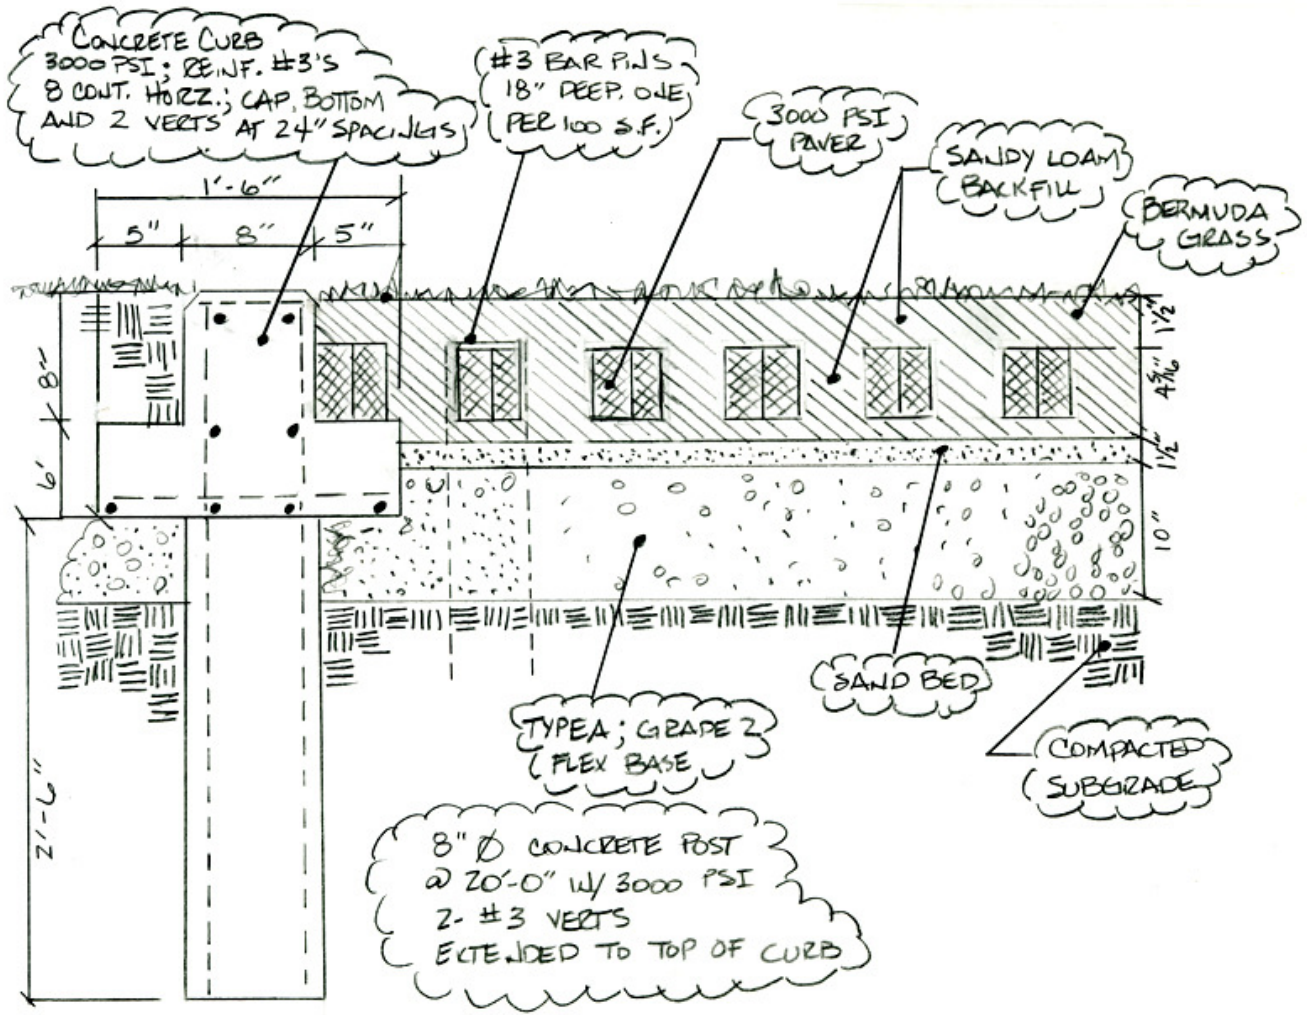 CONCRETE CURB
3000 PSI; REINF. #3'S
8 CONT. HORZ.; CAP, BOTTOM
AND 2 VERTS AT 24" SPACINGS
#3 BAR PINS
18" DEEP. ONE
PER 100 S.F.
3000 PSI
PAVER
SANDY LOAM
BACKFILL
BERMUDA
GRASS
1'-6"
5" 8" 5"
8"
6'
2'-6"
1½"
4 3/16"
1½"
10"
SAND BED
TYPE A; GRADE 2
FLEX BASE
COMPACTED
SUBGRADE
8" Ø CONCRETE POST
@ 20'-0" W/ 3000 PSI
2- #3 VERTS
EXTENDED TO TOP OF CURB